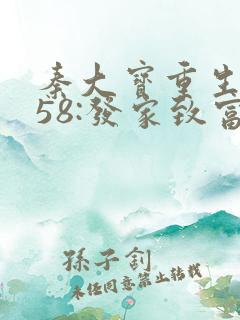 秦大寶重生
58:發家致富
孫子釗
未经同意禁止转载